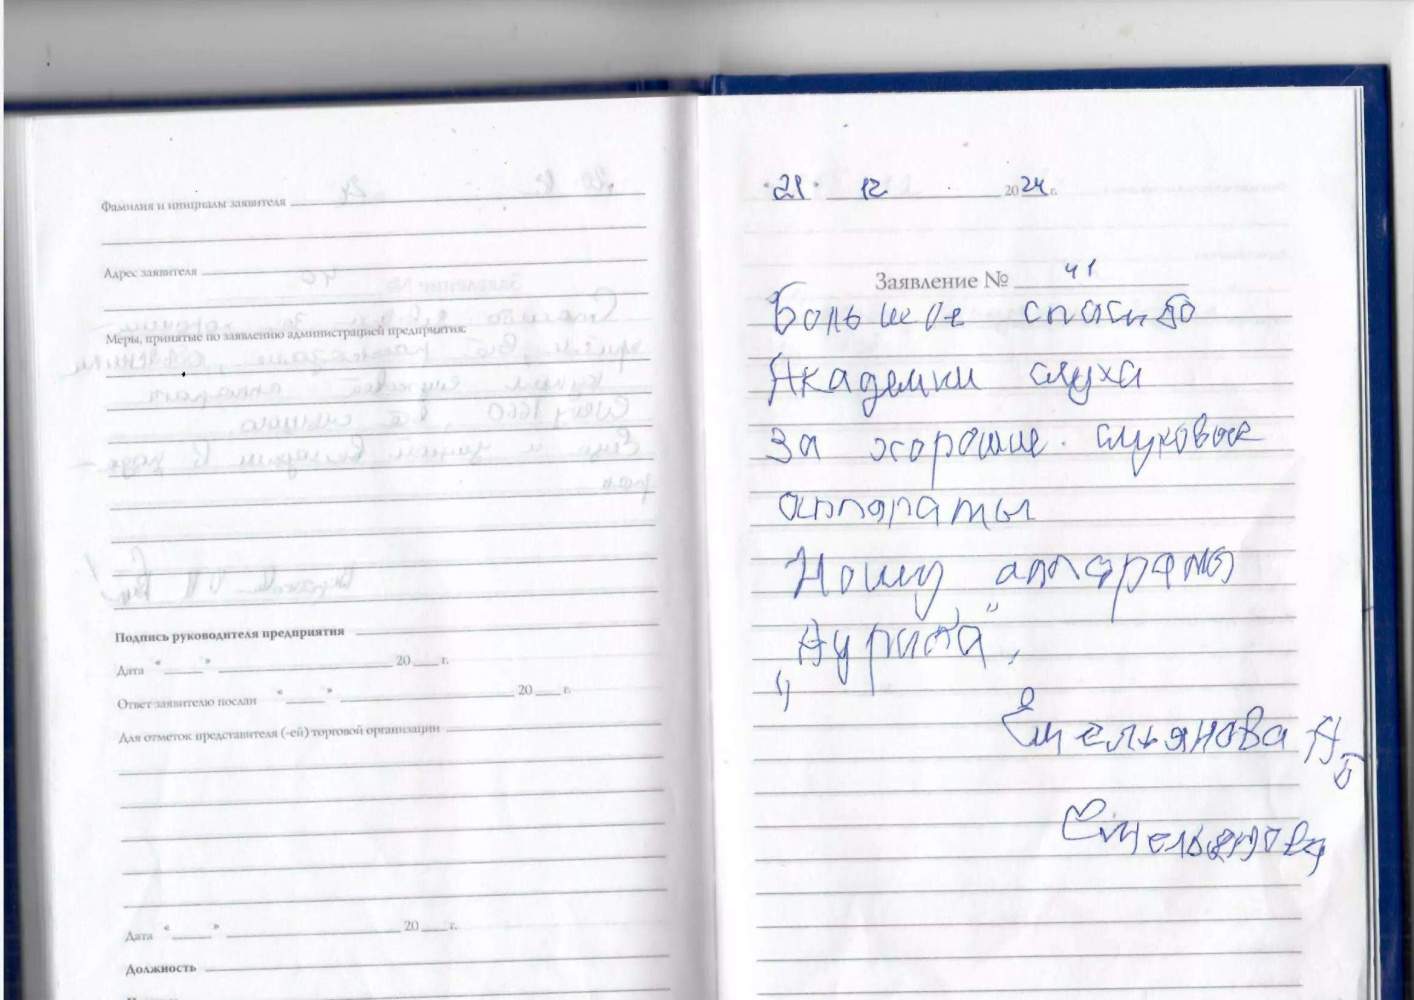 Фамилия и инициалы заявителя
Адрес заявителя
Меры, принятые по заявлению администрацией предприятия:
Подпись руководителя предприятия
Дата « » 20 г.
Ответ заявителю послан « » 20 г.
Для отметок представителя (-ей) торговой организации
Дата « » 20 г.
Должность
"21" 12 2024 г.
Заявление № 41
Большое спасибо
Академии слуха
за хорошие слуховые
аппараты
Ношу аппараты
„Аурика",
Емельянова А
Емельянова